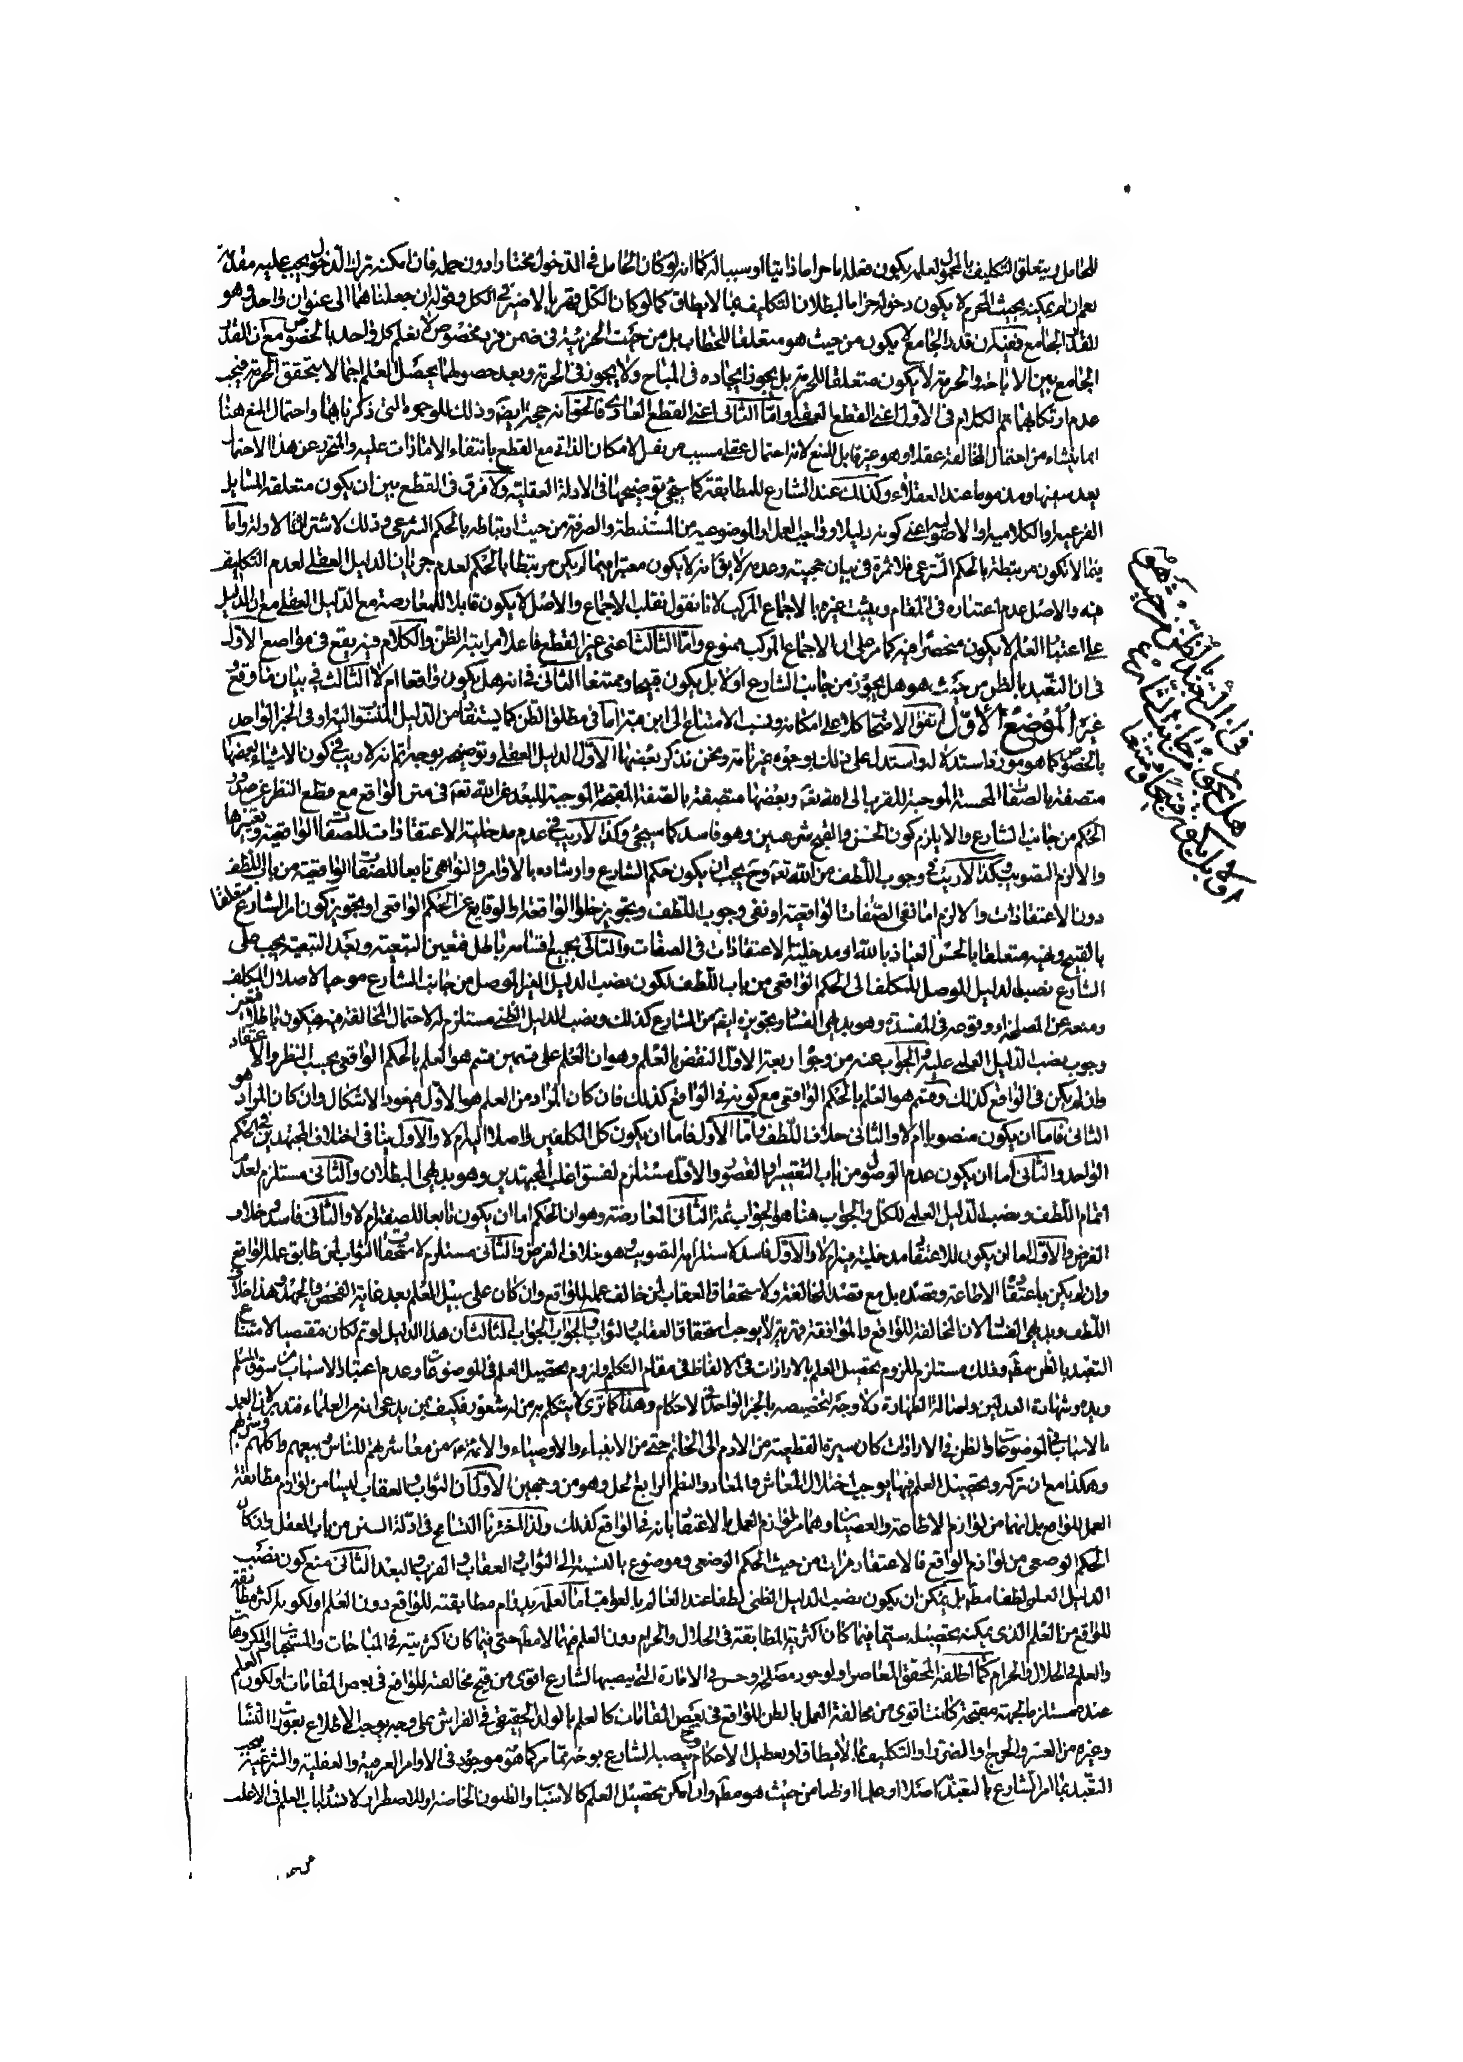 للحامل ويتعلق التكليف بالمحمول لعله يكون فعله اما حراما ذاتيا او سببا له كما انه لو كان الحامل في الدخول مختارا دون حمله فان امكنه ترك الدخول يجب عليه مقدمة
نعم ان لم يمكنه بحيث الحرم لا يكون دخوله حراما لبطلان التكليف بما لا يطاق كما لو كان الكل فقيرا لا ضير في الكل وقوله ان جعلناهما الى عنوان واحد وهو
القدر الجامع ففيه ان قدر الجامع لا يكون من حيث هو متعلقا للخطاب بل من حيث الجزئية في ضمن فرد مخصوص لا نعلم كل واحد بالخصوص مع ان القدر
الجامع بين الاباحة والحرمة لا يكون متعلقا للحرمة بل يجوز ايجاده في المباح ولا يجوز في الحرمة وبعد حصولهما يحصل العلم اجمالا بتحقق الحرمة فيجب
عدم ارتكابهما تم الكلام في الاول اعني القطع العقلي واما الثاني اعني القطع العادي فالحق انه حجة ايضا وذلك للوجوه التي ذكرناها واحتمال المنع هنا
انما ينشاء من احتمال المخالفة عقلا وهو غير قابل للمنع لانه احتمال عقلي مسبب من نفس الامكان الذاتي مع القطع بانتفاء الامارات عليه والتحرز عن هذا الاحتمال
يعد سفها ومذموما عند العقلاء وكذلك عند الشارع للمطابقة كما سيجئ توضيحها في الادلة العقلية ولا فرق في القطع بين ان يكون متعلقه المسايل
الفرعية او الكلامية او الاصولية اعني كونه دليلا او واجب العمل والموضوعية من المستنبطة والصرفة من حيث ارتباطه بالحكم الشرعي وذلك لاشتراك الادلة واما
فيما لا تكون مرتبطة بالحكم الشرعي فلا ثمرة في بيان حجيته وعدمه لا يق انه لا يكون معتبرا فيما لم يكن مرتبطا بالحكم لعدم جريان الدليل العقلي لعدم التكليف
فيه والاصل عدم اعتباره في المقام ويثبت غيره بالاجماع المركب لانا نقول نقلب الاجماع والاصل لا يكون قابلا للمعارضة مع الدليل العقلي مع ان الدليل
على اعتبار العلم لا يكون منحصرا فيه كما مر على ان الاجماع المركب ممنوع واما الثالث اعني غير القطع فاعلا مراتبه الظن والكلام فيه يقع في مواضع الاول
في ان التعبد بالظن من حيث هو هل يجوز من جانب الشارع او لا بل يكون قبيحا وممتنعا الثاني في انه هل يكون واقعا ام لا الثالث في بيان ما وقع
غيره الموضع الاول اتفق الاصحاب كلا على امكانه ونسب الامتناع الى ابن قبة اما في مطلق الظن كما يستفاد من الدليل المنسوب اليه او في الخبر الواحد
بالخصوص كما هو مورد استدلاله واستدل على ذلك بوجوه غير تامة ونحن نذكر بعضها الاول الدليل العقلي وتوضيحه بوجه اتم انه لا ريب في كون الاشياء بعضها
متصفة بالصفات المحسنة الموجبة للقرب الى الله تعه وبعضها متصفة بالصفة المقبحة الموجبة للبعد عن الله تعه في متن الواقع مع قطع النظر عن صدور
الحكم من جانب الشارع والا يلزم كون الحسن والقبح شرعيين وهو فاسد كما سيجئ وكذا لا ريب في عدم مدخلية الاعتقادات للصفات الواقعية وتغييرها
والا لزم التصويب وكذا لا ريب في وجوب اللطف من الله تعه وح يجب ان يكون حكم الشارع وارشاده بالاوامر والنواهي تابعا للصفات الواقعية من باب اللطف
دون الاعتقادات والا لزم اما نفي الصفات الواقعية او نفي وجوب اللطف وتجويز خلو الواقعة والوقايع عن الحكم الواقعي او تجويز كون امر الشارع متعلقا
بالقبيح ونهيه متعلقا بالحسن العياذ بالله او مدخلية الاعتقادات في الصفات والتالي بجميع اقسامه باطل فتعين التبعية وبعد التبعية يجب على
الشارع نصب الدليل الموصل للمكلف الى الحكم الواقعي من باب اللطف لكون نصب الدليل الغير الموصل من جانب الشارع موجبا لاضلال المكلف
ومنعه عن المصلحة ووقوعه في المفسدة وهو بديهي الفساد وتجويزه ايضا من الشارع كذلك ونصب الدليل الظني مستلزم له لاحتمال المخالفة فيه فيكون باطلا فتعين
وجوب نصب الدليل العلمي عليه والجواب عنه من وجوه اربعة الاول النقض بالعلم وهو ان العلم على قسمين قسم هو العلم بالحكم الواقعي بحسب النظر والاعتقاد
وان لم يكن في الواقع كذلك وقسم هو العلم بالحكم الواقعي مع كونه في الواقع كذلك فان كان المراد من العلم هو الاول فيعود الاشكال وان كان المراد هو
الثاني فاما ان يكون منصوبا ام لا والثاني خلاف اللطف واما الاول فاما ان يكون كل المكلفين واصلا اليه ام لا والاول ينافي اختلاف المجتهدين في الحكم
الواحد والثاني اما ان يكون عدم الوصول من باب التقصير او القصور والاول مستلزم لفسق اغلب المجتهدين وهو بديهي البطلان والثاني مستلزم لعدم
اتمام اللطف ونصب الدليل العلمي للكل والجواب هنا هو الجواب ثمة الثاني المعارضة وهو ان الحكم اما ان يكون تابعا للصفة ام لا والثاني فاسد وخلاف
الفرض والاول اما ان يكون للاعتقاد مدخلية فيه ام لا والاول فاسد لاستلزامه التصويب وهو خلاف الفرض والثاني مستلزم لاستحقاق الثواب لمن طابق عمله الواقع
وان لم يكن باعتقاد الاطاعة وقصده بل مع قصد المخالفة ولاستحقاق العقاب لمن خالف عمله الواقع وان كان على سبيل العلم بعد غاية الفحص والجهد وهذا خلاف
اللطف وبديهي الفساد لان المخالفة للواقع والموافقة قهرية لا يوجب استحقاق العقاب والثواب والجواب الجواب الثالث ان هذا الدليل لو تم لكان مقتضيا لامتناع
التعبد بالظن مطه وذلك مستلزم للزوم تحصيل العلم بالارادات في الالفاظ في مقام التكلم ولزوم تحصيل العلم في الموضوعات وعدم اعتبار الاسباب من سوق المسلم
ويده وشهادة العدلين واصالة الطهارة ولا وجه لتخصيصه بالخبر الواحد في الاحكام وهذا كما ترى لا يتكلم به من له شعور فكيف بمن يدعي انه من العلماء فتدبر لان العمل
بالاسباب في الموضوعات والظن في الارادات كان سيرة القطعية من الادم الى الخاتم حتى من الانبياء والاوصياء والائمة ع من معاشرتهم للناس وبيعهم واكلهم وشربهم
وهكذا مع ان تركه وتحصيل العلم فيها يوجب اختلال المعاش والمعاد والنظم الرابع الحل وهو من وجهين الاول ان الثواب والعقاب ليسا من لوازم مطابقة
العمل للواقع بل انهما من لوازم الاطاعة والعصيان وهما من لوازم العمل بالاعتقاد بانه في الواقع كذلك ولذا اخترنا التسامح في ادلة السنن من باب العقل وان كان
الحكم الوضعي من لوازم الواقع فالاعتقاد مرات من حيث الحكم الوضعي وموضوع بالنسبة الى الثواب والعقاب والقرب والبعد الثاني منع كون نصب
الدليل العلمي لطفا مطه بل يمكن ان يكون نصب الدليل الظني لطفا عند العالم بالعواقب اما لعلمه بدوام مطابقته للواقع دون العلم او لكونه اكثر مطابقة
للواقع من العلم الذي يمكنه تحصيله سيما فيما كان اكثرية المطابقة في الحلال والحرام دون العلم فيهما لا مطه حتى فيما كان اكثريته في المباحات والمستحبات والمكروهات
والعلم في الحلال والحرام كما اطلقه المحقق المعاصر او لوجود مصلحة وحسن في الامارة التي ينصبها الشارع اقوى من قبح مخالفته للواقع في بعض المقامات او لكون العلم
عنده مستلزما لجهة مقبحة كانت اقوى من مخالفة العمل بالظن للواقع في بعض المقامات كالعلم بالولد الحقيقي في الفراش على وجه يوجب الاطلاع بعورات النساء
وغيره من العسر والحرج او الضرر او التكليف بما لا يطاق او تعطيل الاحكام وح ينصب الشارع بوجه مما مر كما هو موجود في الاوامر العرفية والعقلية والشرعية فيجب
التعبد بما امر الشارع بالتعبد كاصلا او علما او ظنا من حيث هو مطه وان امكن تحصيل العلم كالاسباب والظنون الخاصة او للاضطرار لانسداد باب العلم في الاغلب
في ان التعبد بالظن من حيث هو
هل يجوز من جانب الشارع
او لا بل يكون قبيحا وممتنعا